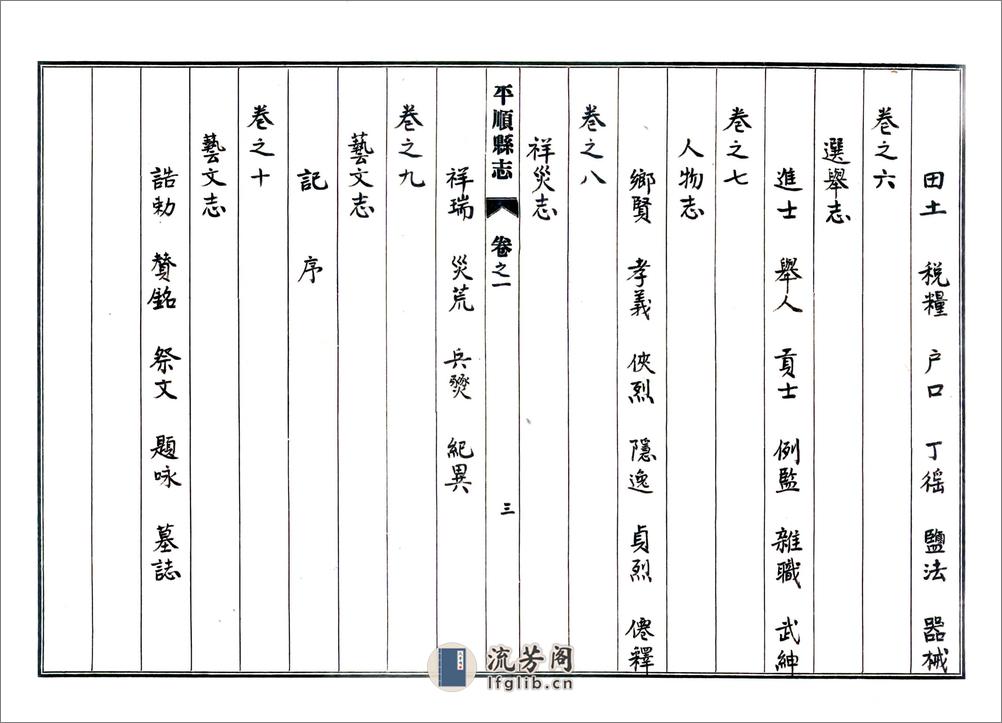 田土 稅糧 户口 丁徭 鹽法 器械
卷之六
選舉志
進士 舉人 貢士 例監 雜職 武紳
卷之七
人物志
鄉賢 孝義 俠烈 隱逸 貞烈 僊釋
卷之八
祥災志
平順縣志 卷之一 三
祥瑞 災荒 兵燹 紀異
卷之九
藝文志
記 序
卷之十
藝文志
誥勅 贊銘 祭文 題咏 墓誌
流芳阁
lfglib.cn